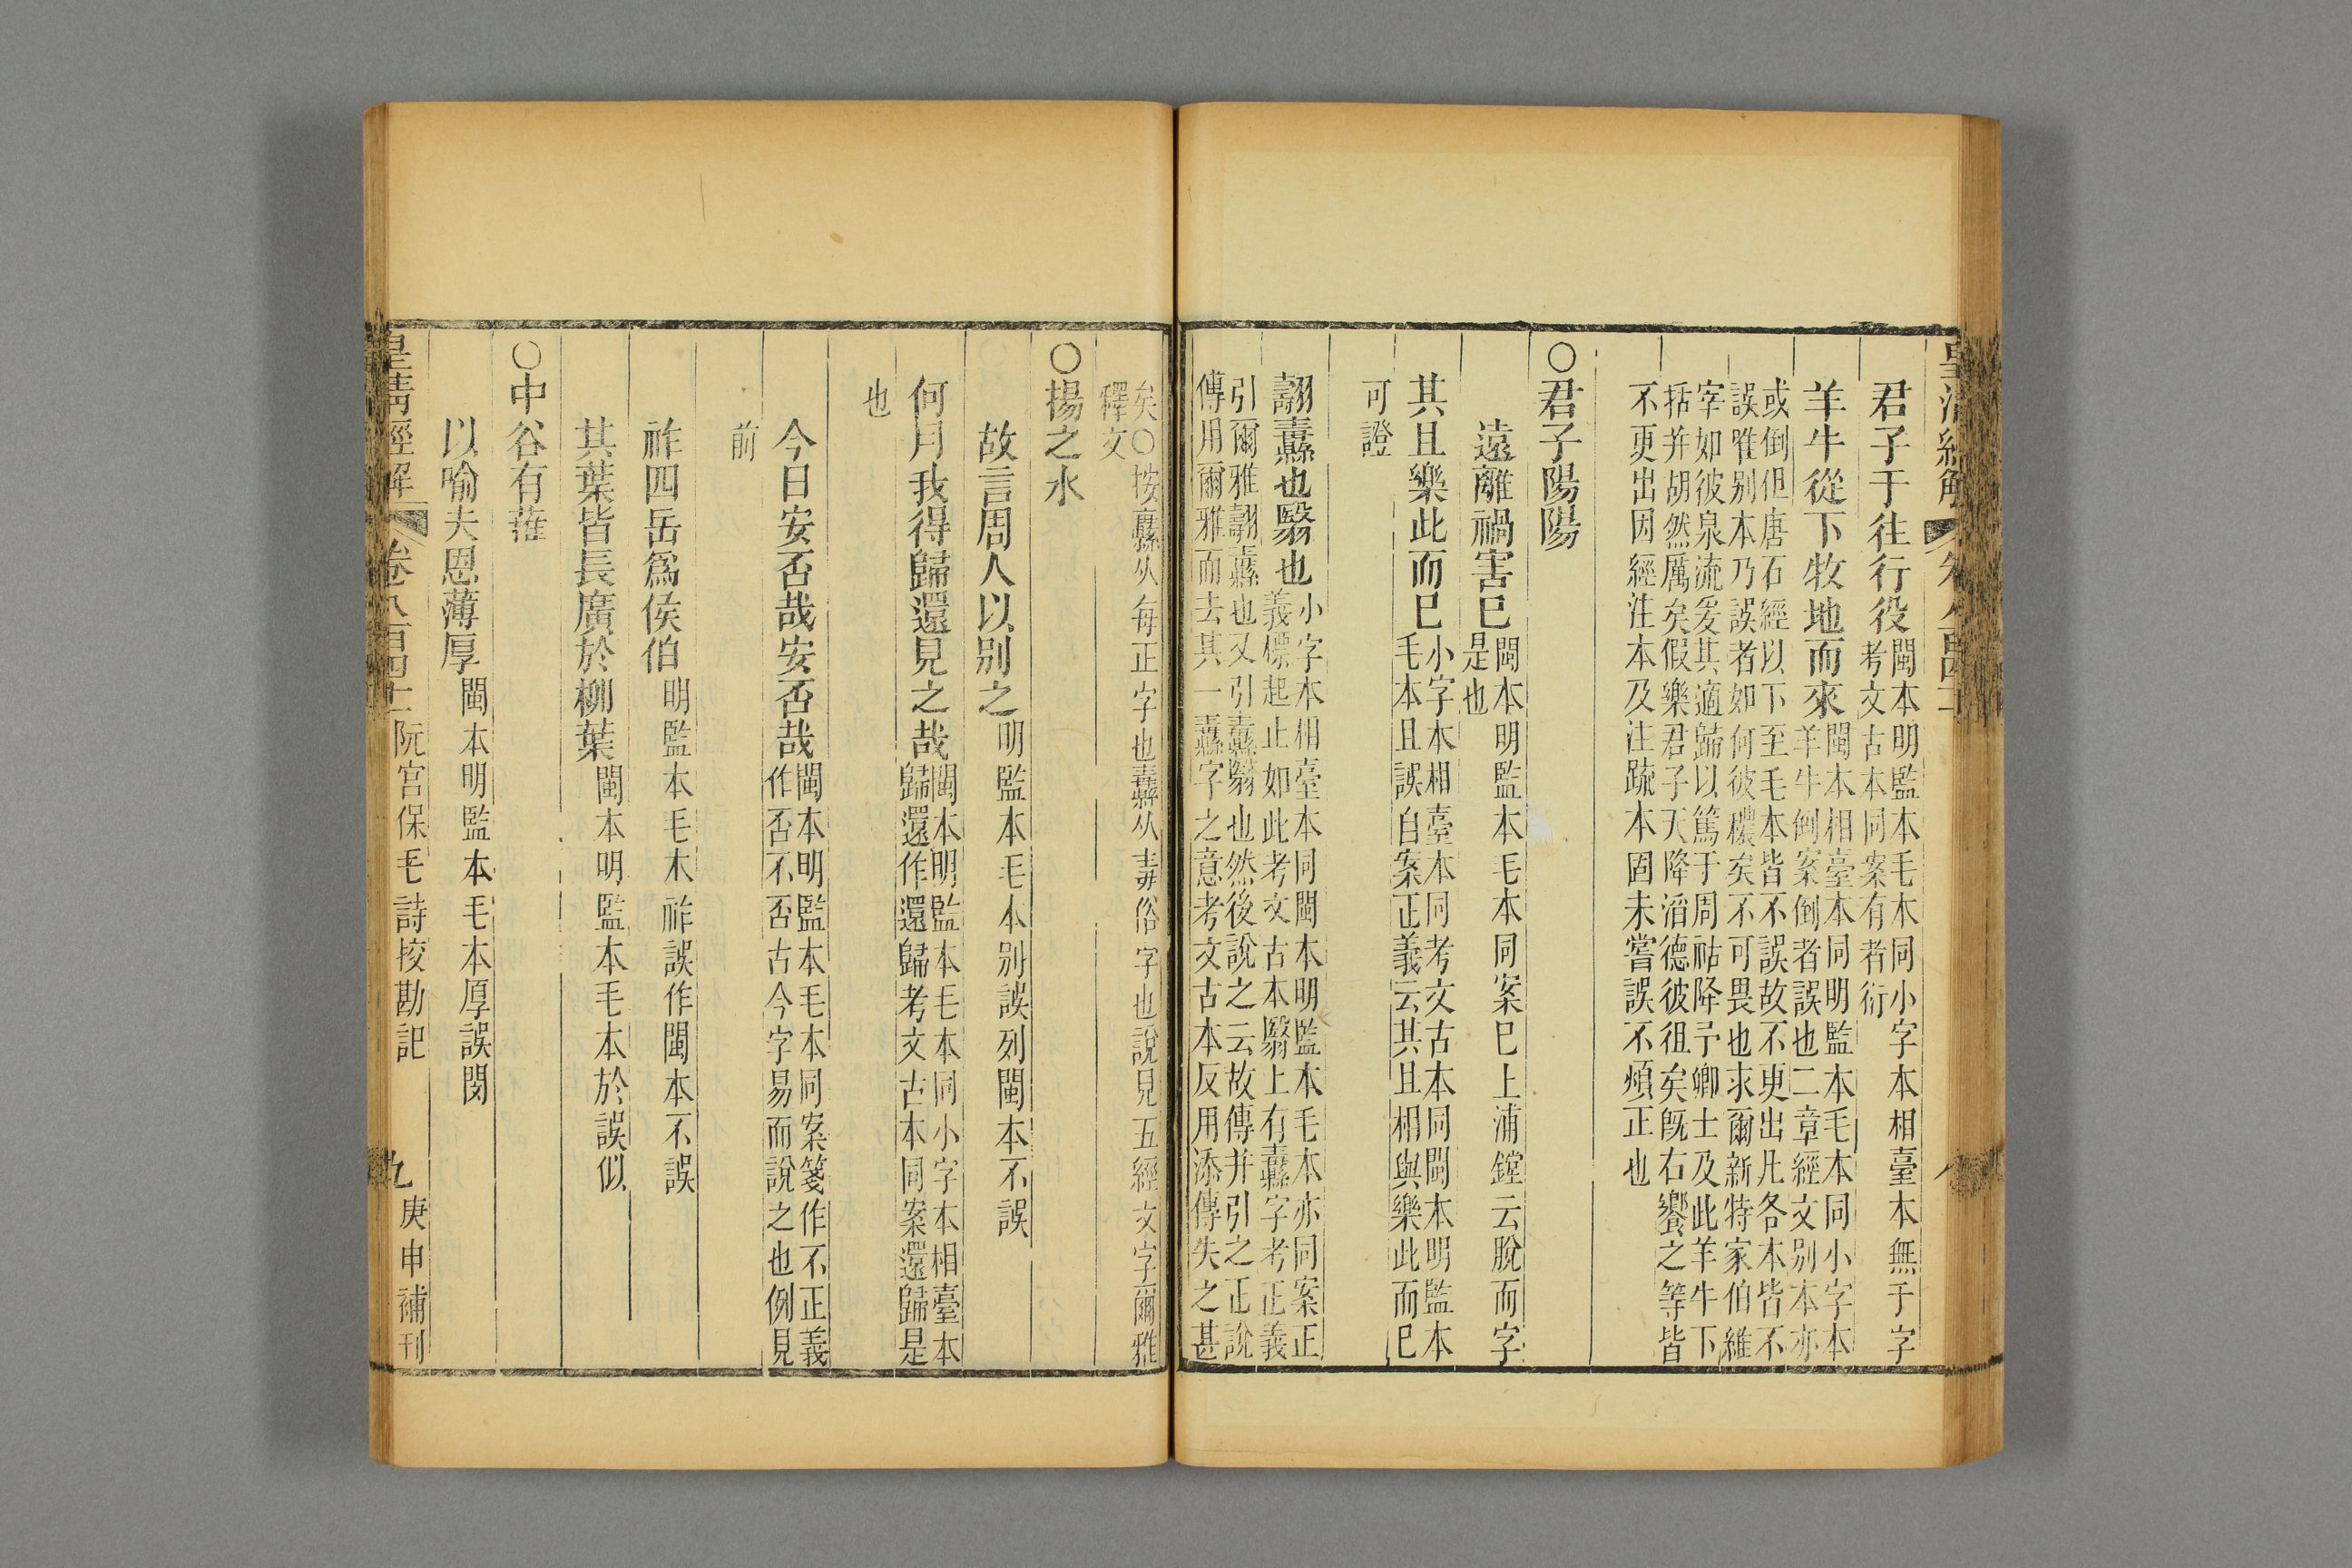 君子于往行役閩本明監本毛本同小字本相臺本無于字
考文古本同案有者衍
羊牛從下牧地而來閩本相臺本同明監本毛本同小字本
羊牛倒案倒者誤也二章經文别本亦
或倒但唐石經以下至毛本皆不誤故不更出凡各本皆不
誤唯别本乃誤者如何彼穠矣不可畏也求爾新特家伯維
宰如彼泉流爰其適歸以篤于周祜降予卿士及此羊牛下
括并胡然厲矣假樂君子天降滔德彼徂矣旣右饗之等皆
不更出因經注本及注疏本固未嘗誤不煩正也
○君子陽陽
遠離禍害已閩本明監本毛本同案已上浦鏜云脫而字
是也
其且樂此而已小字本相臺本同考文古本同閩本明監本
毛本且誤自案正義云其且相與樂此而已
可證
翿纛也翳也小字本相臺本同閩本明監本毛本亦同案正
義標起止如此考文古本翳上有纛字考正義
引爾雅翿纛也又引纛翳也然後說之云故傳并引之正說
傳用爾雅而去其一纛字之意考文古本反用添傳失之甚
矣○按纛从每正字也纛从毒俗字也說見五經文字爾雅
釋文
○揚之水
故言周人以别之明監本毛本别誤列閩本不誤
何月我得歸還見之哉閩本明監本毛本同小字本相臺本
歸還作還歸考文古本同案還歸是
也
今日安否哉安否哉閩本明監本毛本同案箋作不正義
作否不否古今字易而說之也例見
前
祚四岳爲侯伯明監本毛本祚誤作閩本不誤
其葉皆長廣於柳葉閩本明監本毛本於誤似
○中谷有蓷
以喻夫恩薄厚閩本明監本毛本厚誤閔
皇淸經解 卷八百四十一 阮宮保毛詩挍勘記 九 庚申補刊